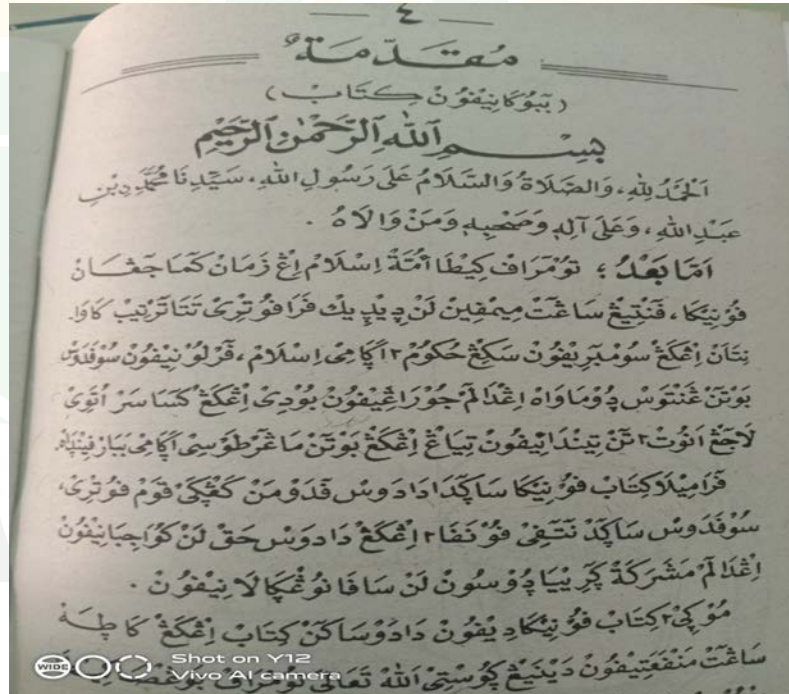 ٤
مُقَدِّمَةٌ
(بُبُوكَانِيْفُوْنْ كِتَابْ)
بِسْمِ اللهِ الرَّحْمٰنِ الرَّحِيْمِ
اَلْحَمْدُ لِلّٰهِ، وَالصَّلَاةُ وَالسَّلَامُ عَلَى رَسُولِ اللهِ، سَيِّدِنَا مُحَمَّدِ بْنِ
عَبْدِ اللهِ، وَعَلَى آلِهِ وَصَحْبِهِ وَمَنْ وَالَاهُ .
اَمَّا بَعْدُ ؛ تُوْمْرَافْ كِيْطَا اُمَّةْ اِسْلَامْ اِڠْ زَمَانْ كَمَاجَڠَانْ
فُوْنِيْكَا، فَنْتِيْڠْ سَاڠَتْ مِيْمْفِيْنْ لَنْ دِيْدِيْكْ فَرَا فُوْتْرِيْ تَتَا تَرْتِيْبْ كَاوَا.
نِتَانْ اِڠْكَڠْ سُوْمْبَرِيْفُوْنْ سَكِڠْ حُكُوْم٢ اَڮَامِيْ اِسْلَامْ، فَرْلُوْنِيْفُوْنْ سُوْفَدَوْسْ
بَوْتَنْ غَنْتَوْسْ دُوْمَاوَاهْ اِڠْدَالَمْ جُوْرَاڠِيْفُوْنْ بُوْدِيْ اِڠْكَڠْ كَسَاسَرْ اُتَوِيْ
لَاجَڠْ اَنُوْت٢ تَنْ تِيْنْدَاِيْفُوْنْ تِيَاڠْ اِڠْكَڠْ بَوْتَنْ مَاڠَرْطَوْسِيْ اَڮَامِيْ بَيَارْفِيْنْدَاهْ.
فَرَامِيْلَا كِتَابْ فُوْنِيْكَا سَاڮَدَا دَادَوْسْ فَدَوْمَنْ كَڠْڮَيْ قَوْمْ فُوْتْرِيْ،
سُوْفَدَوْسْ سَاڮَدْ نَتَفِيْ فُوْنَفَا٢ اِڠْكَڠْ دَادَوْسْ حَقْ لَنْ كَوَاجِبَانِيْفُوْنْ
اِڠْدَالَمْ مَشَرَكَةْ ڮَرِيْيَا دُوْسُوْنْ لَنْ سَافَانُوْڠْڮَالَانِيْفُوْنْ .
مُوْڮِي٢ كِتَابْ فُوْنِيْكَا دِيْفُوْنْ دَادَوْسَاكَنْ كِتَابْ اِڠْكَڠْ كَاطَهْ
سَاڠَتْ مَنْفَعَتِيْفُوْنْ دَيْنِيْڠْ ڮُوْسْتِيْ اللهْ تَعَالَى تُوْمْرَافْ
WIDE
Shot on Y12
Vivo AI camera